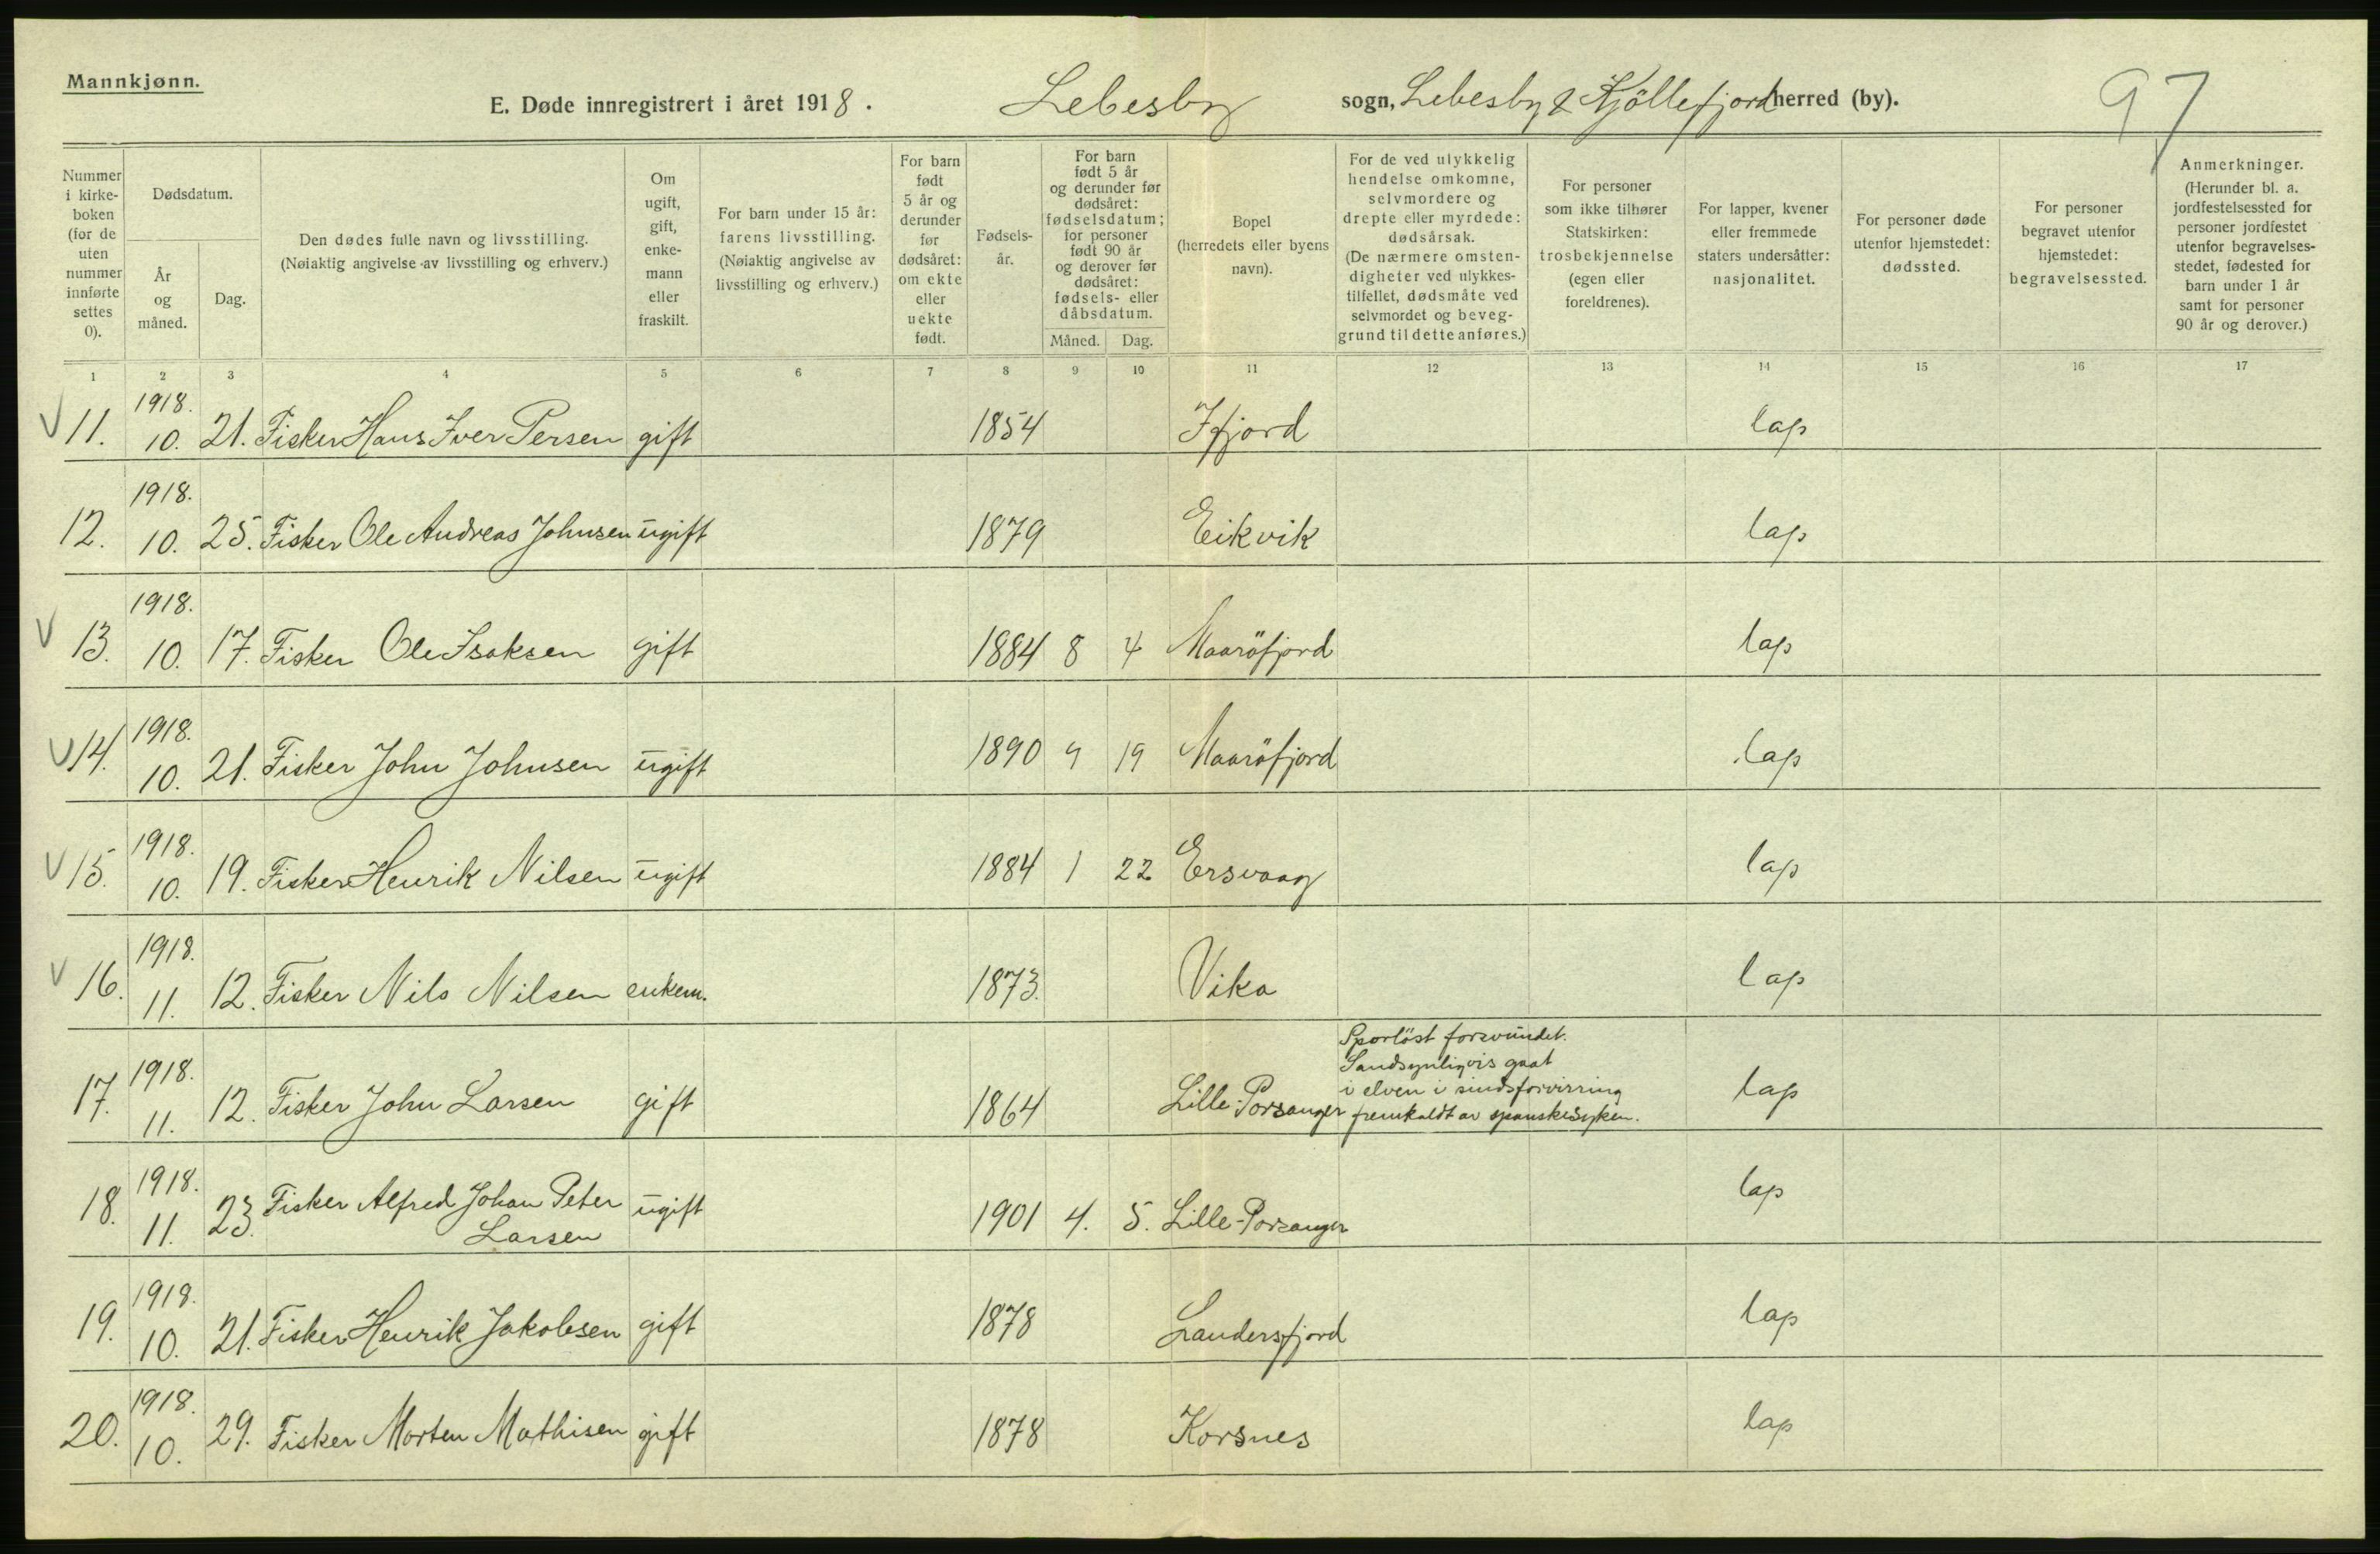 Mannkjønn.
E. Døde innregistrert i året 1918. Lebesby sogn, Lebesby & Kjöllefjord herred (by). 97
Nummer i kirke-boken (for de uten nummer innførte settes 0).
Dødsdatum.
År og måned.
Dag.
Den dødes fulle navn og livsstilling.
(Nøiaktig angivelse av livsstilling og erhverv.)
Om ugift, gift, enke-mann eller fraskilt.
For barn under 15 år: farens livsstilling.
(Nøiaktig angivelse av livsstilling og erhverv.)
For barn født 5 år og derunder før dødsåret: om ekte eller uekte født.
Fødsels-år.
For barn født 5 år og derunder før dødsåret: fødselsdatum; for personer født 90 år og derover før dødsåret: fødsels- eller dåbsdatum.
Måned. Dag.
Bopel (herredets eller byens navn).
For de ved ulykkelig hendelse omkomne, selvmordere og drepte eller myrdede: dødsårsak.
(De nærmere omsten-digheter ved ulykkes-tilfellet, dødsmåte ved selvmordet og beveg-grund til dette anføres.)
For personer som ikke tilhører Statskirken: trosbekjennelse (egen eller foreldrenes).
For lapper, kvener eller fremmede staters undersåtter: nasjonalitet.
For personer døde utenfor hjemstedet: dødssted.
For personer begravet utenfor hjemstedet: begravelsessted.
Anmerkninger.
(Herunder bl. a. jordfestelsessted for personer jordfestet utenfor begravelses-stedet, fødested for barn under 1 år samt for personer 90 år og derover.)
1 2 3 4 5 6 7 8 9 10 11 12 13 14 15 16 17
V 11. 1918. 10. 21. Fisker Hans Iver Persen gift 1854 Ifjord lap
12. 1918. 10. 25. Fisker Ole Andreas Johnsen ugift 1879 Eikvik lap
V 13. 1918. 10. 17. Fisker Ole Isaksen gift 1884 8 4 Maaröfjord lap
V 14. 1918. 10. 21. Fisker John Johnsen ugift 1890 9 19 Maaröfjord lap
V 15. 1918. 10. 19. Fisker Henrik Nilsen ugift 1884 1 22 Ersvaag lap
V 16. 1918. 11. 12. Fisker Nils Nilsen enkem. 1873. Vika lap
17. 1918. 11. 12. Fisker John Larsen gift 1864 Lille-Porsanger
Sporlöst forsvundet.
Sandsynligvis gaat
i elven i sindsforvirring
fremkaldt av spanskesyken.
lap
18. 1918. 11. 23. Fisker Alfred Johan Peter
Larsen
ugift 1901 4. 5. Lille-Porsanger lap
19. 1918. 10. 21. Fisker Henrik Jakobsen gift 1878 Landersfjord lap
20. 1918. 10. 29. Fisker Morten Mathisen gift 1878 Korsnes lap